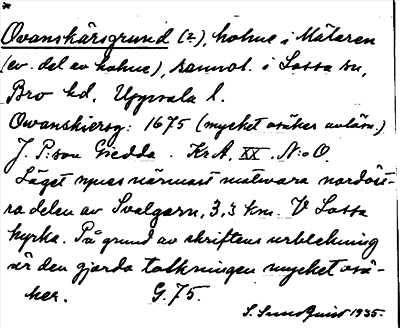 *
Ovanskärsgrund (2), holme i Mälaren
(ev. del av holme), sannol. i Lossa sn,
Bro hd, Uppsala l.
Owanskiersg: 1675 (mycket osäker avläsn.)
J. P:son Giedda. KrA, XX. N:o O.
Läget synes närmast motsvara nordöst-
ra delen av Svalgarn, 3,3 km. V Lossa
kyrka. På grund av skriftens urblekning
är den gjorda tolkningen mycket osä-
ker. G. 75.
S. Sundquist 1935.